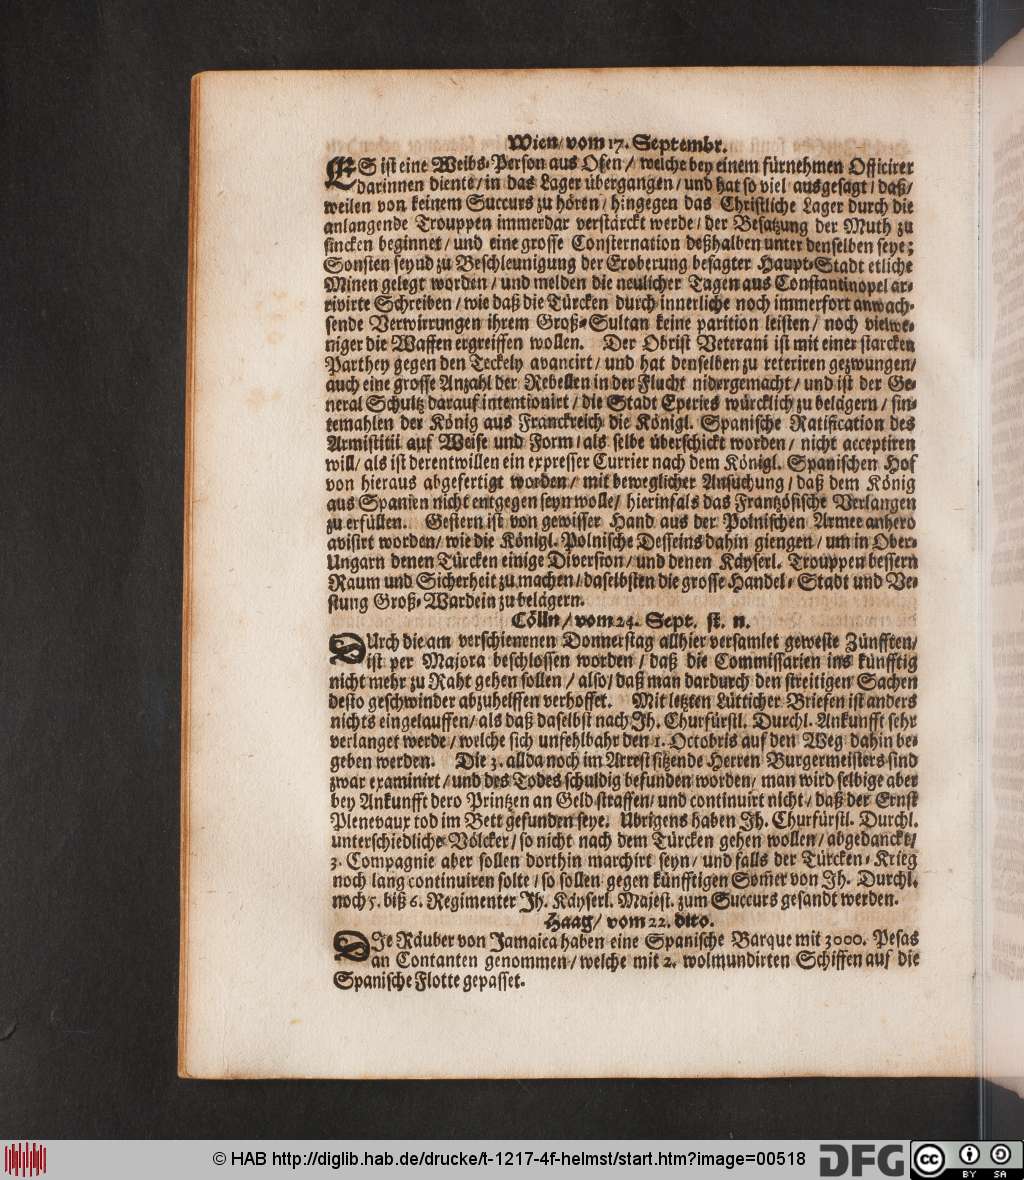 Wien/ vom 17. Septembr.
ES ist eine Weibs-Person aus Ofen / welche bey einem fürnehmen Officirer
darinnen diente/ in das Lager übergangen / und hat so viel ausgesagt / daß/
weilen von keinem Succurs zu hören / hingegen das Christliche Lager durch die
anlangende Trouppen immerdar verstärckt werde / der Besatzung der Muth zu
sincken beginnet / und eine grosse Consternation deßhalben unter denselben seye;
Sonsten seynd zu Beschleunigung der Eroberung besagter Haupt-Stadt etliche
Minen gelegt worden / und melden die neulicher Tagen aus Constantinopel ar-
rivirte Schreiben / wie daß die Türcken durch innerliche noch immerfort anwach-
sende Verwirrungen ihrem Groß-Sultan keine parition leisten / noch vielwe-
niger die Waffen ergreiffen wollen. Der Obrist Veterani ist mit einer starcken
Parthey gegen den Teckely avancirt / und hat denselben zu reteriren gezwungen/
auch eine grosse Anzahl der Rebellen in der Flucht nidergemacht / und ist der Ge-
neral Schultz darauf intentionirt / die Stadt Eperies würcklich zu belägern / sin-
temahlen der König aus Franckreich die Königl. Spanische Ratification des
Armistitii auf Weise und Form / als selbe überschickt worden / nicht acceptiren
will/ als ist derentwillen ein expresser Currier nach dem Königl. Spanischen Hof
von hieraus abgefertigt worden / mit beweglicher Ansuchung / daß dem König
aus Spanien nicht entgegen seyn wolle/ hierinfals das Frantzösische Verlangen
zu erfüllen. Gestern ist von gewisser Hand aus der Polnischen Armee anhero
avisirt worden/ wie die Königl. Polnische Desseins dahin giengen / um in Ober-
Ungarn denen Türcken einige Diversion / und denen Käyserl. Trouppen bessern
Raum und Sicherheit zu machen / daselbsten die grosse Handel-Stadt und Ve-
stung Groß-Wardein zu belägern.
Cölln / vom 24. Sept. st. n.
DUrch die am verschienenen Donnerstag allhier versamlet geweste Zünfften/
ist per Majora beschlossen worden / daß die Commissarien ins künfftig
nicht mehr zu Raht gehen sollen / also/ daß man dardurch den streitigen Sachen
desto geschwinder abzuhelffen verhoffet. Mit letzten Lütticher Briefen ist anders
nichts eingelauffen/ als daß daselbst nach Ih. Churfürstl. Durchl. Ankunfft sehr
verlanget werde / welche sich unfehlbahr den 1. Octobris auf den Weg dahin be-
geben werden. Die 3. allda noch im Arrest sitzende Herren Burgermeisters sind
zwar examinirt / und des Todes schuldig befunden worden/ man wird selbige aber
bey Ankunfft dero Printzen an Geld straffen/ und continuirt nicht / daß der Ernst
Plenevaux tod im Bett gefunden seye. Ubrigens haben Ih. Churfürstl. Durchl.
unterschiedliche Völcker / so nicht nach dem Türcken gehen wollen / abgedanckt/
3. Compagnie aber sollen dorthin marchirt seyn / und falls der Türcken-Krieg
noch lang continuiren solte / so sollen gegen künfftigen Som̃er von Ih. Durchl.
noch 5. biß 6. Regimenter Ih. Käyserl. Majest. zum Succurs gesandt werden.
Haag/ vom 22. dito.
DIe Räuber von Jamaica haben eine Spanische Barque mit 3000. Pesas
an Contanten genommen / welche mit 2. wolmundirten Schiffen auf die
Spanische Flotte gepasset.
© HAB http://diglib.hab.de/drucke/t-1217-4f-helmst/start.htm?image=00518
DFG
cc BY SA